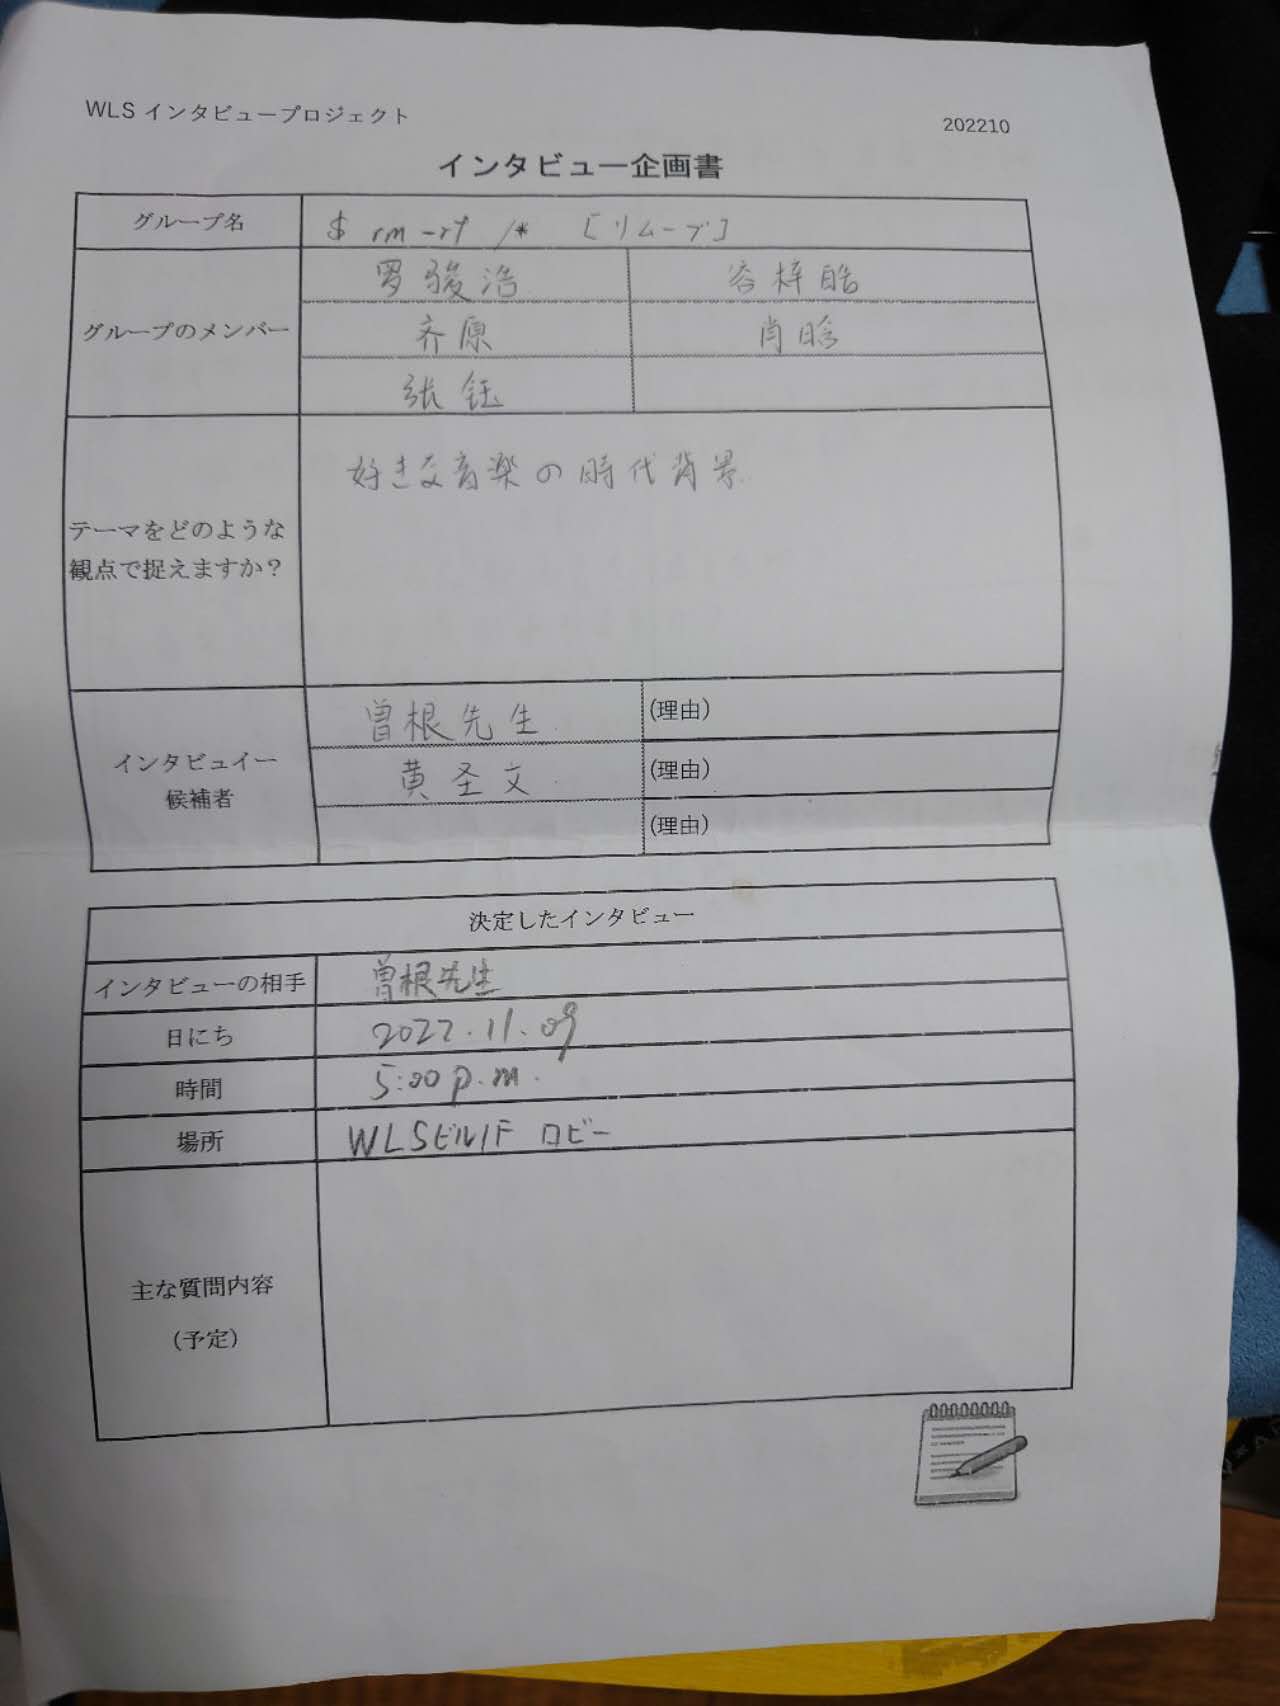 WLS インタビュープロジェクト
202210
インタビュー企画書
グループ名
$ rm -rf /* [リムーブ]
グループのメンバー
罗骏浩
容梓皓
齐原
肖晗
张钰
テーマをどのような
観点で捉えますか？
好きな音楽の時代背景
インタビュイー
候補者
曽根先生
(理由)
黄圣文
(理由)
(理由)
決定したインタビュー
インタビューの相手
曽根先生
日にち
2022.11.09
時間
5:00 p.m.
場所
WLSビル1F ロビー
主な質問内容
(予定)